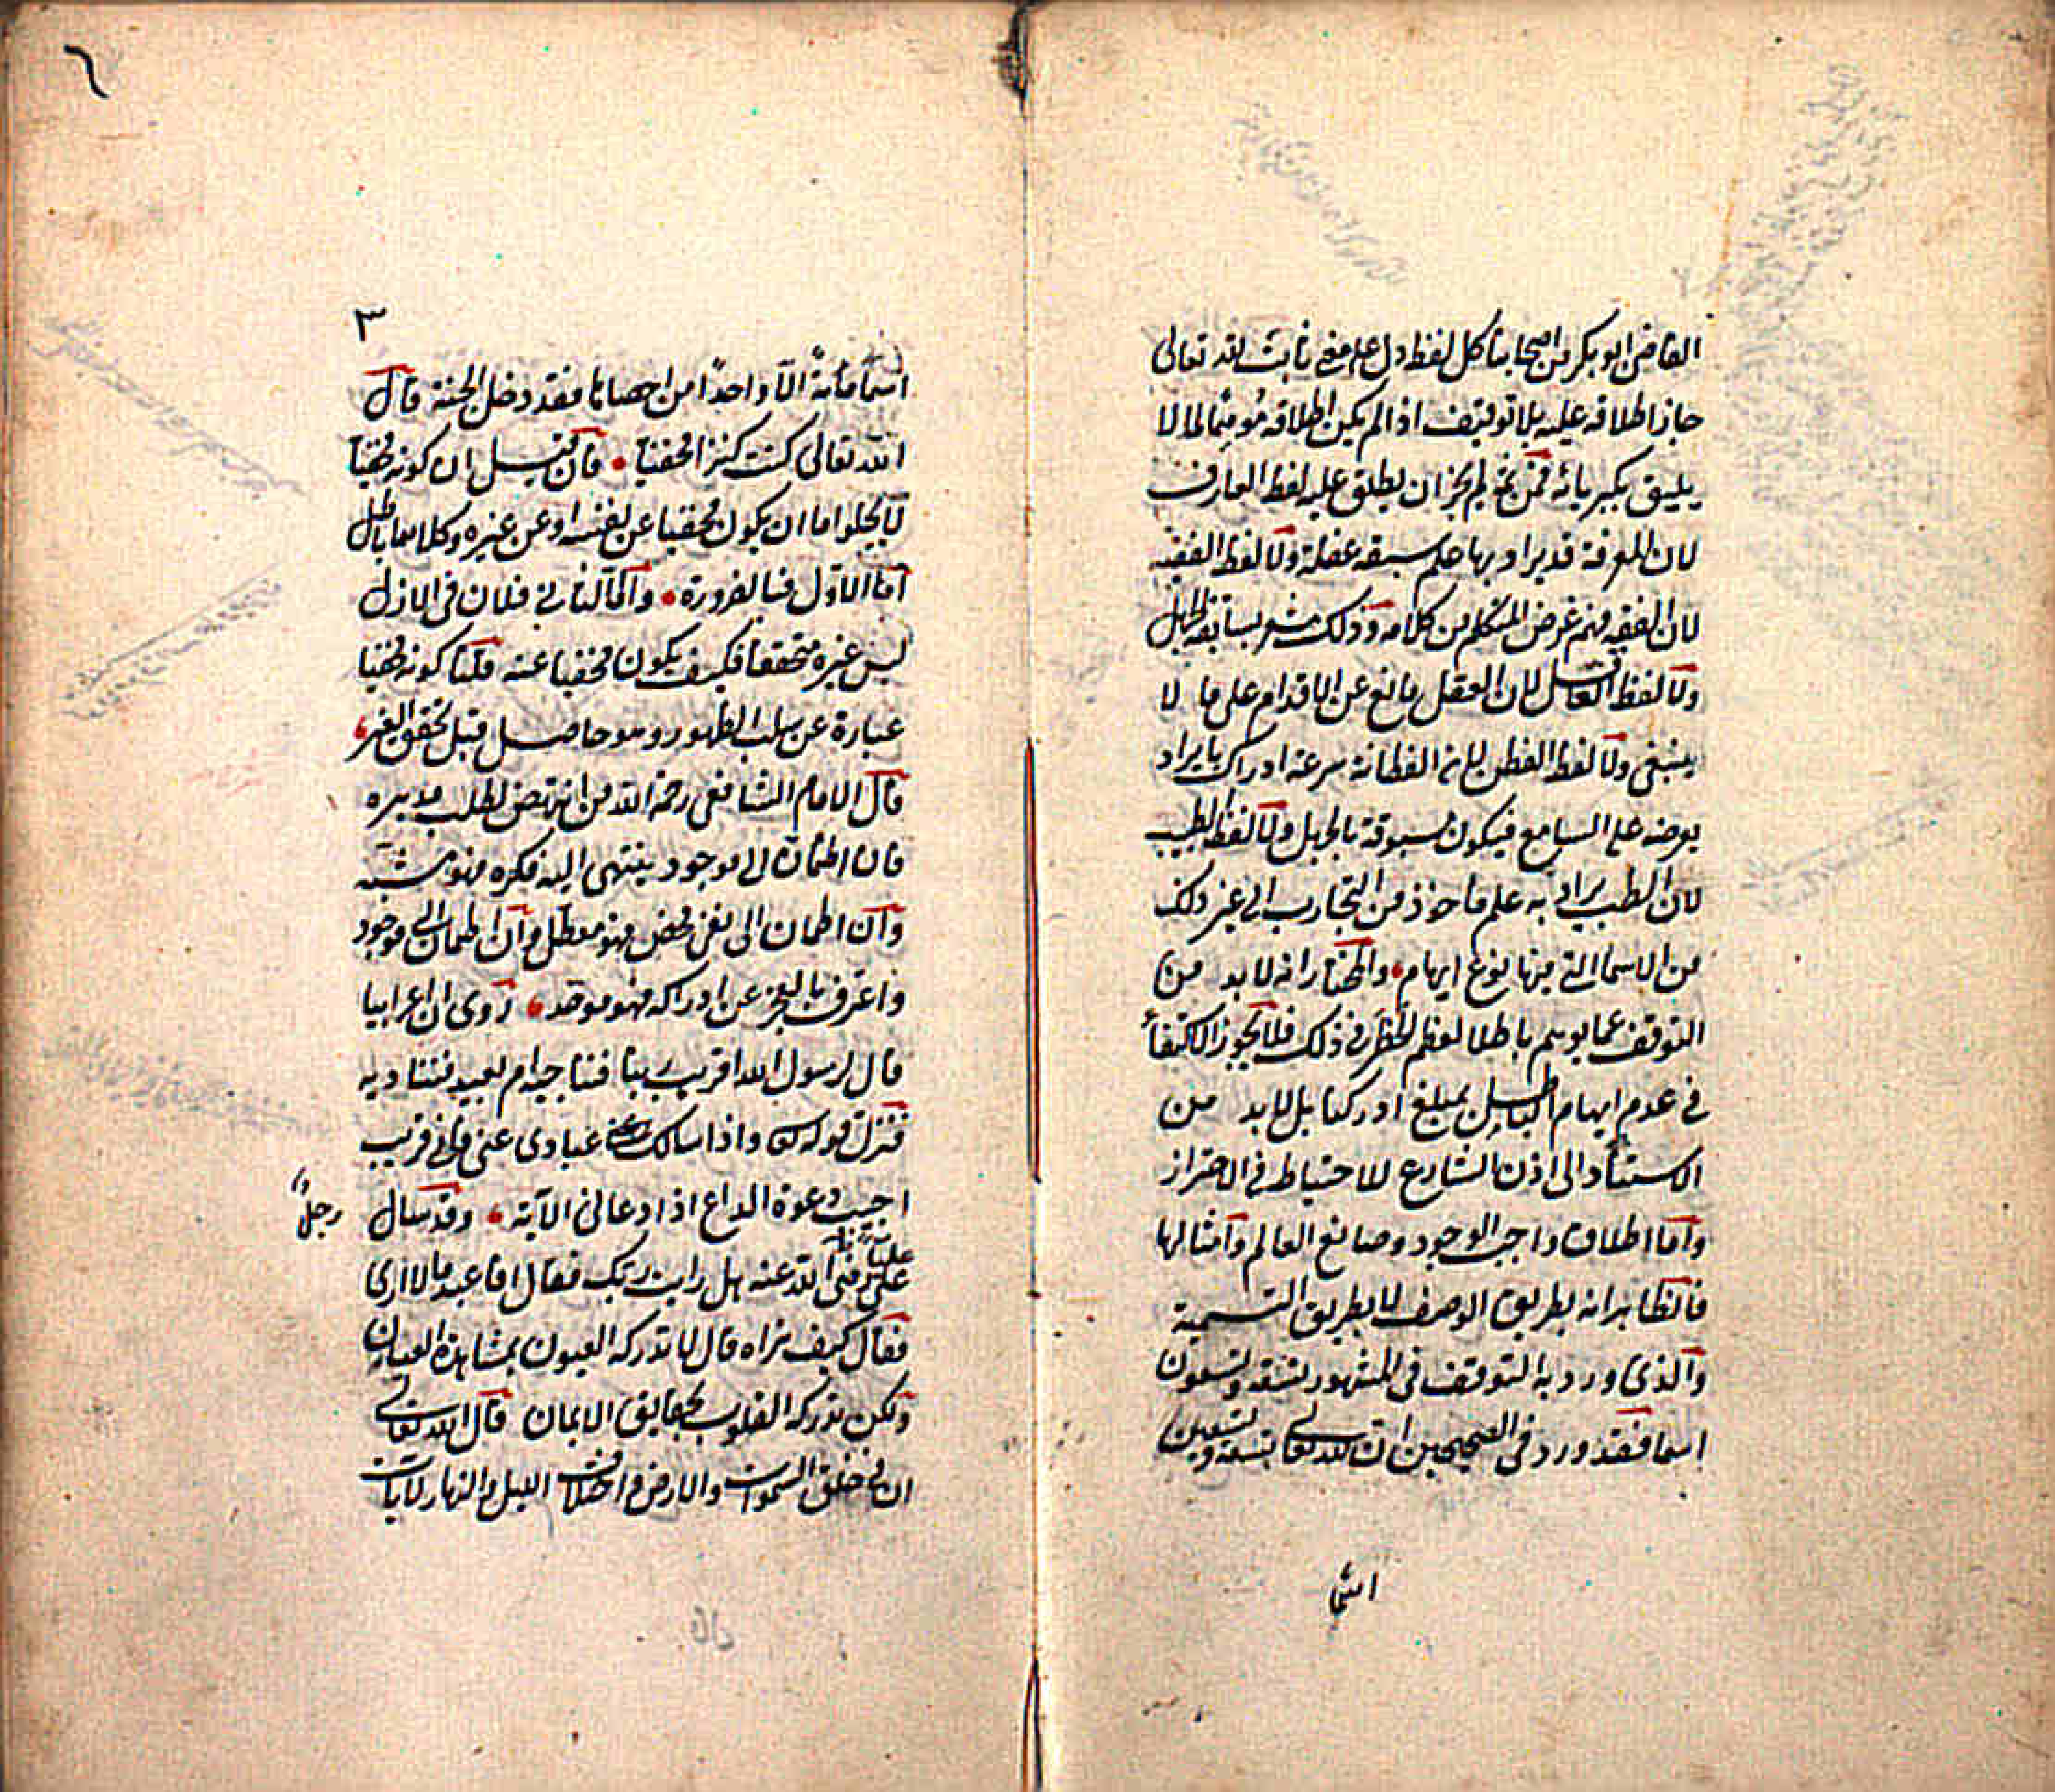 القاضى ابو بكر من اصحابنا كل لفظ دل على معنى ثابت لله تعالى
جاز اطلاقه عليه بلا توقيف اذا لم يكن اطلاقه موهما لما لا
يليق بكبريائه فمن ثمه لم يجز ان يطلق عليه لفظ العارف
لان المعرفة قد يراد بها علم سبقه غفلة ولا لفظ الفقيه
لان الفقه فهم غرض المتكلم من كلامه وذلك مشعر بسابقة الجهل
ولا لفظ العاقل لان العقل مانع عن الاقدام على ما لا
ينبغى ولا لفظ الفطن لان الفطانة سرعة ادراك ما يراد
يعرضه على السامع فيكون مسبوقة بالجهل ولا لفظ الطبيب
لان الطب يراد به علم ماخوذ من التجارب الى غير ذلك
من الاسما التى فيها نوع ايهام والمختار انه لا بد من
التوقف عما يوهم باطلا لعظم الخطر فى ذلك فلا يجوز الاكتفاء
فى عدم ايهام الباطل بمبلغ ادراكنا بل لا بد من
الاستناد الى اذن الشارع للاحتياط فى الاحتراز
واما اطلاق واجب الوجود وصانع العالم وامثالها
فالظاهر انه بطريق الوصف لا بطريق التسمية
والذى ورد به التوقف فى المشهور تسعة وتسعون
اسما فقد ورد فى الصحيحين ان لله تعالى تسعة وتسعين
اسما
٦
٣
اسما مائة الا واحدا من احصاها فقد دخل الجنة قال
الله تعالى كنت كنزا مخفيا فان قيل ان كونه مخفيا
لا يخلوا اما ان يكون مخفيا عن نفسه او عن غيره وكلاهما باطل
اما الاول فبالضرورة واما الثانى فلان فى الازل
ليس غيره متحققا فكيف يكون مخفيا عنه قلنا كونه مخفيا
عبارة عن سلب الظهور وهو حاصل قبل تحقق الغير
قال الامام الشافعى رحمه الله من انتهض لطلب مدبره
فان اطمأن الى موجود ينتهى اليه فكره فهو مشبه
وان اطمان الى نفى محض فهو معطل وان اطمان الى موجود
واعترف بالعجز عن ادراكه فهو موحد روى ان اعرابيا
قال لرسول الله اقريب ربنا فنناجيه ام بعيد فنناديه
فنزل قوله واذا سالك عبادى عنى فانى قريب
اجيب دعوة الداع اذا دعانى الآية وقد سال رجل
على رضى الله عنه هل رايت ربك فقال افاعبد ما لا ارى
فقال كيف تراه قال لا تدركه العيون بمشاهدة العيان
ولكن تدركه القلوب بحقايق الايمان قال الله تعالى
ان فى خلق السموات والارض واختلاف الليل والنهار لآيات